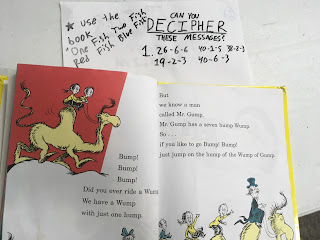 * use the
book
"One Fish Two Fish
Red Fish Blue Fish"
CAN YOU
DECIPHER
THESE MESSAGES?
1. 26-6-6 40-1-5 38-2-3
19-2-3 40-6-3
Bump!
Bump!
Bump!
Did you ever ride a Wump?
We have a Wump
with just one hump.
But
we know a man
called Mr. Gump.
Mr. Gump has a seven hump Wump.
So . . .
if you like to go Bump! Bump!
just jump on the hump of the Wump of Gump.